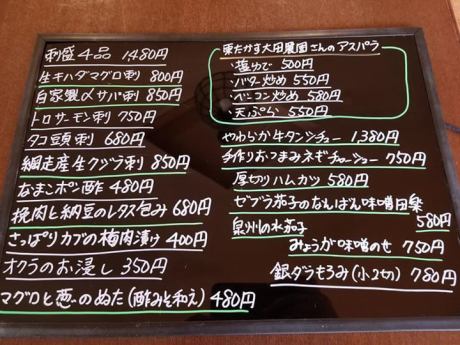 刺盛4品 1480円
生キハダマグロ刺 800円
自家製〆サバ刺 850円
トロサーモン刺 750円
タコ頭刺 680円
網走産生クジラ刺 850円
なまこポン酢 480円
挽肉と納豆のレタス包み 680円
さっぱりカブの梅肉漬け 400円
オクラのお浸し 350円
マグロと葱のぬた(酢みそ和え) 480円
東たかす大田農園さんのアスパラ
・塩ゆで 500円
・バター炒め 550円
・ベーコン炒め 580円
・天ぷら 550円
やわらか牛タンシチュー 1,380円
手作りおつまみネギチャーシュー 750円
厚切りハムカツ 580円
ゼブラ茄子のなんばん味噌田楽
580円
泉州の水茄子
みょうが味噌のせ 750円
銀ダラもろみ(小2切) 780円